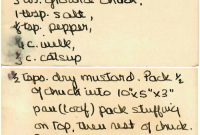 ground chuck,
1 tsp. salt,
tsp. pepper,
c. milk,
c. catsup
½ tspo. dry mustard. Pack ½
of chuck into 10"x5"x3"
pan (loaf) pack stuffing
on top, then rest of chuck.